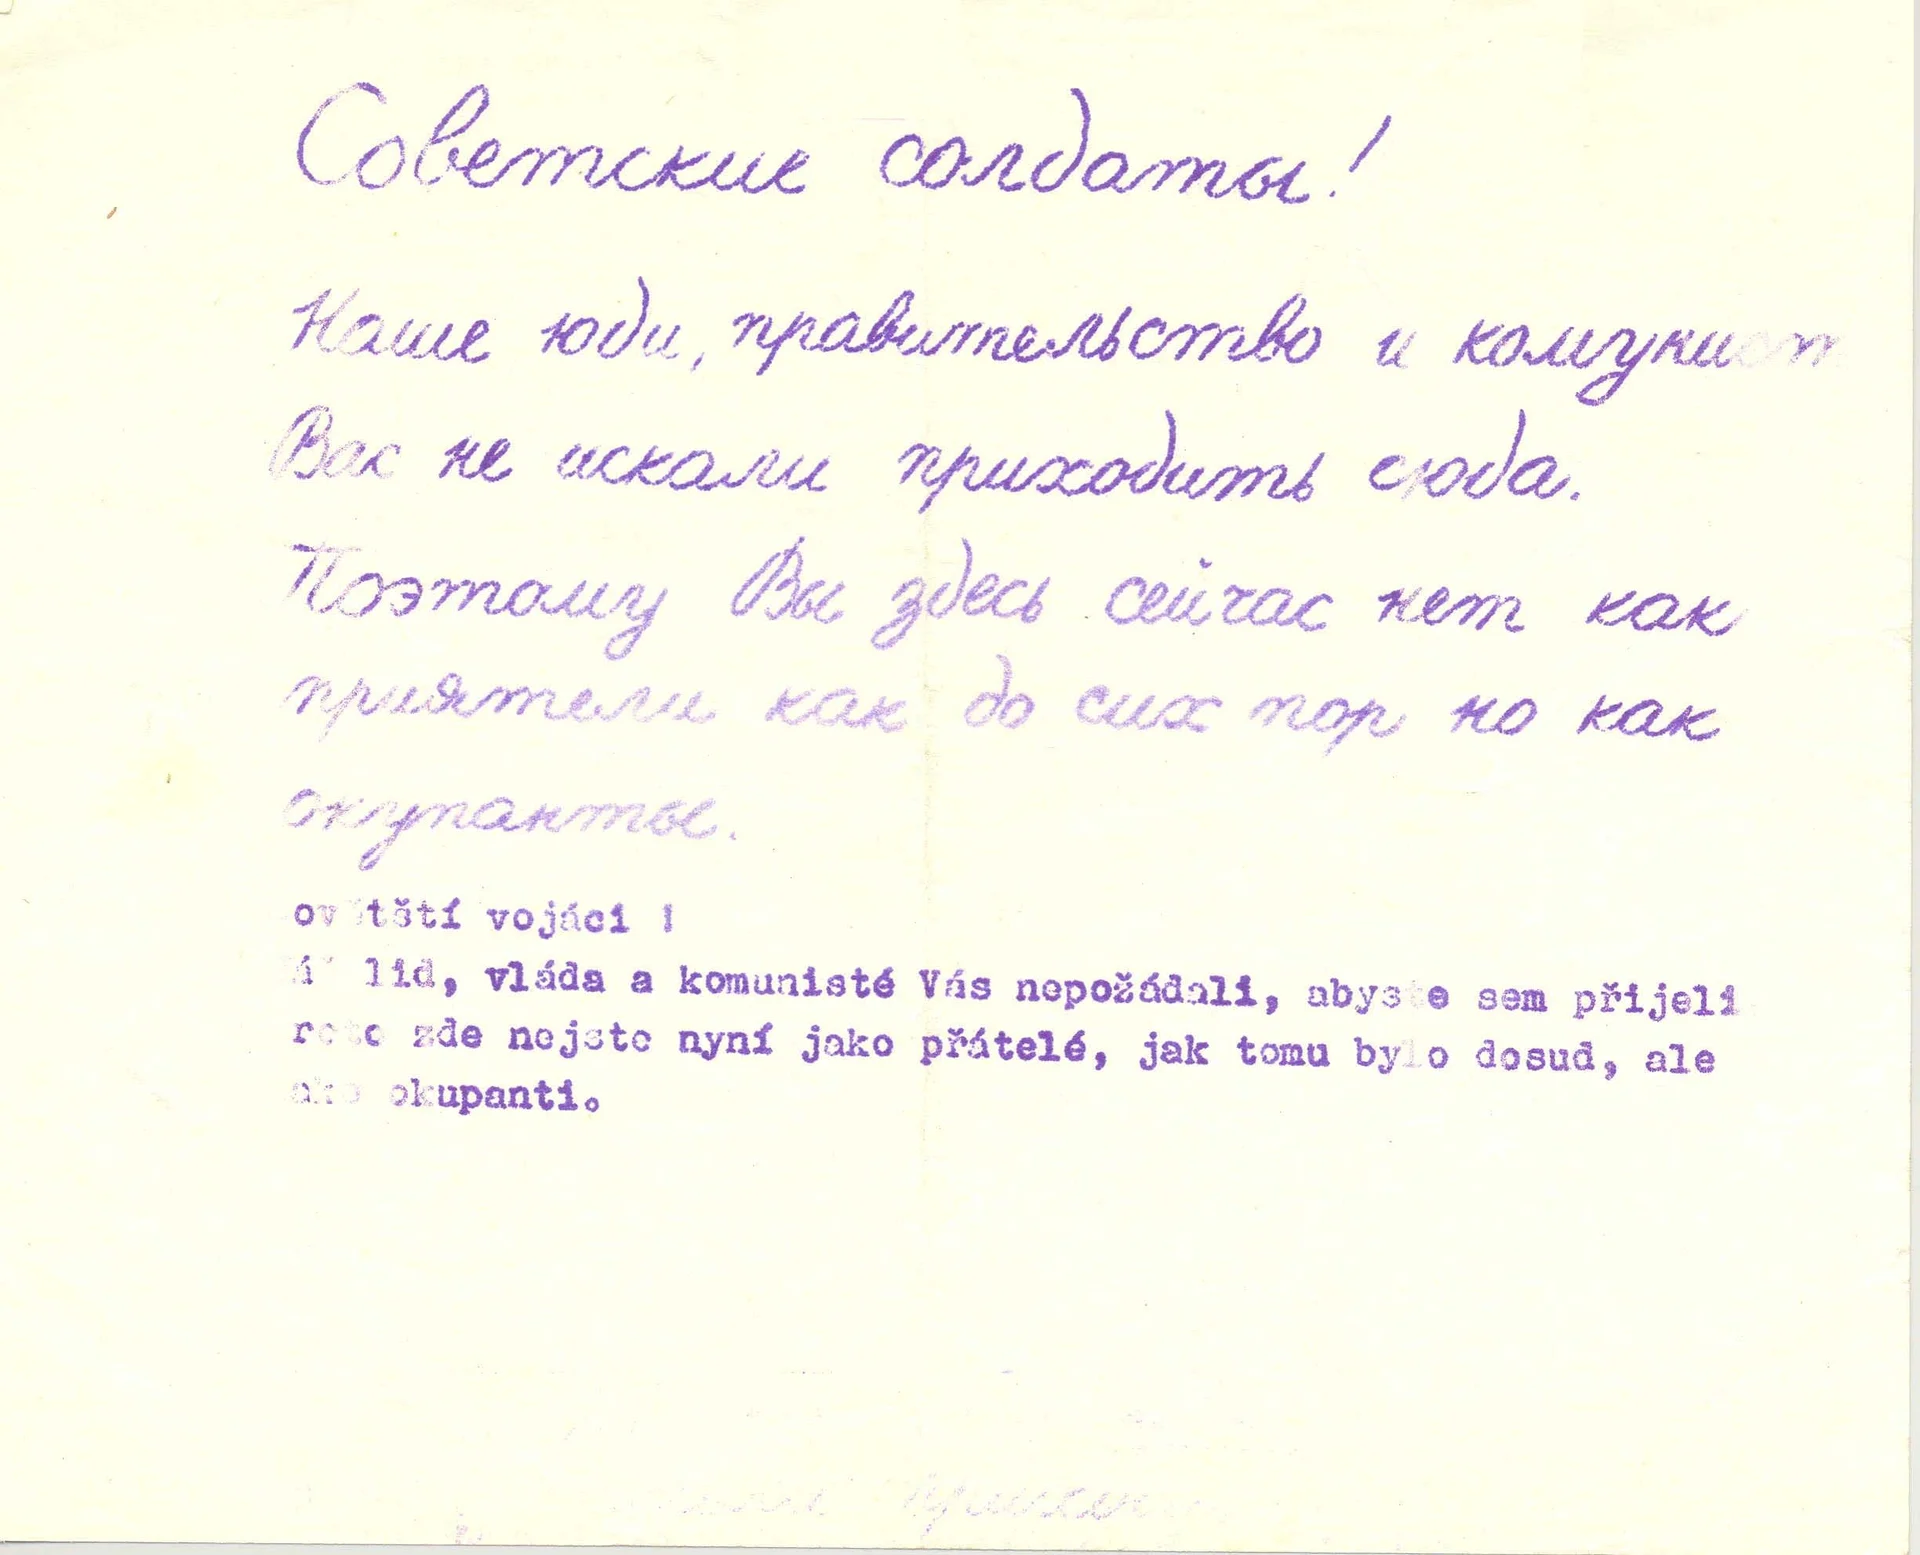 Советские солдаты!
Наше юди, правительство и комунист
Вас не искали приходить сюда.
Поэтому Вы здесь сейчас нет как
приятели как до сих пор но как
окупанты.
ovětští vojáci !
lid, vláda a komunisté Vás nepožádali, abyste sem přijeli
roto zde nejste nyní jako přátelé, jak tomu bylo dosud, ale
ako okupanti.